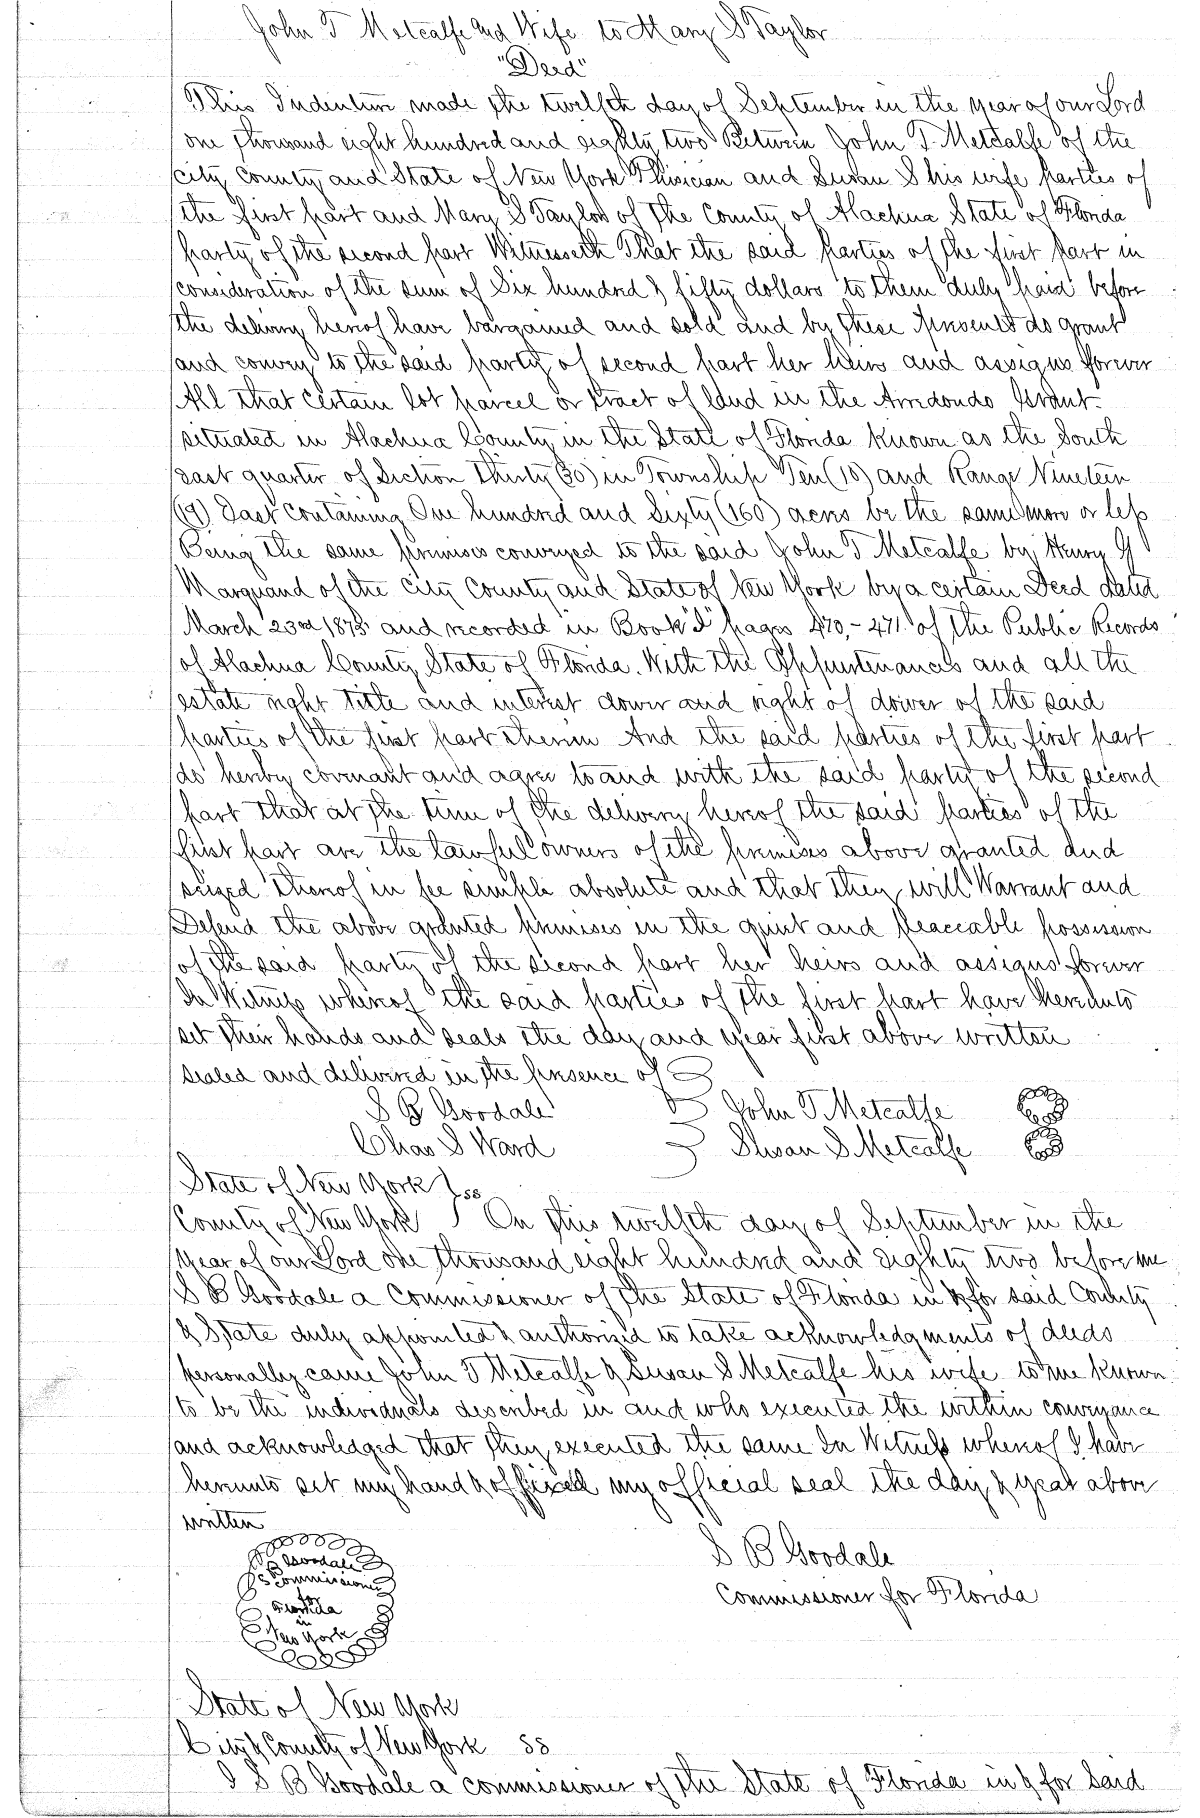 John T Metcalfe and Wife to Mary S Taylor
"Deed"
This Indenture made the twelfth day of September in the year of our Lord
one thousand eight hundred and eighty two Between John T. Metcalfe of the
city County and State of New York Phisician and Susan S his wife parties of
the first part and Mary S Taylor of the County of Alachua State of Florida
party of the second part Witnesseth That the said parties of the first part in
consideration of the sum of Six hundred & fifty dollars to them duly paid before
the delivery hereof have bargained and sold and by these presents do grant
and convey to the said party of second part her heirs and assigns forever
All that certain lot parcel or tract of land in the Arredondo Grant
situated in Alachua County in the State of Florida known as the South
East quarter of Section Thirty (30) in Township Ten (10) and Range Nineteen
(19) East Containing One hundred and Sixty (160) acres be the same more or less
Being the same premises conveyed to the said John T Metcalfe by Henry G
Marquand of the City County and State of New York by a certain Deed dated
March 23rd 1875 and recorded in Book "I" pages 470,-471 of the Public Records
of Alachua County, State of Florida. With the Appurtenances and all the
estate right title and interest dower and right of dower of the said
parties of the first part therein And the said parties of the first part
do hereby covenant and agree to and with the said party of the second
part that at the time of the delivery hereof the said parties of the
first part are the lawful owners of the premises above granted and
seized thereof in fee simple absolute and that they will Warrant and
Defend the above granted premises in the quiet and peaceable possession
of the said party of the second part her heirs and assigns forever
In Witness whereof the said parties of the first part have hereunto
set their hands and seals the day and year first above written
Sealed and delivered in the presence of
S B Goodale John T Metcalfe
Chas S Ward Susan S Metcalfe
State of New York } ss
County of New York } On this twelfth day of September in the
year of our Lord one thousand eight hundred and eighty two before me
S B Goodale a Commissioner of the State of Florida in & for said County
& State duly appointed & authorized to take acknowledgments of deeds
personally came John T Metcalfe & Susan S Metcalfe his wife to me known
to be the individuals described in and who executed the within conveyance
and acknowledged that they executed the same In Witness whereof I have
hereunto set my hand & affixed my official seal the day & year above
written
S B Goodale
Commissioner for Florida
S B Goodale
Commissioner
for
Florida
in
New York
State of New York
City & County of New York ss
I S B Goodale a commissioner of the State of Florida in & for Said